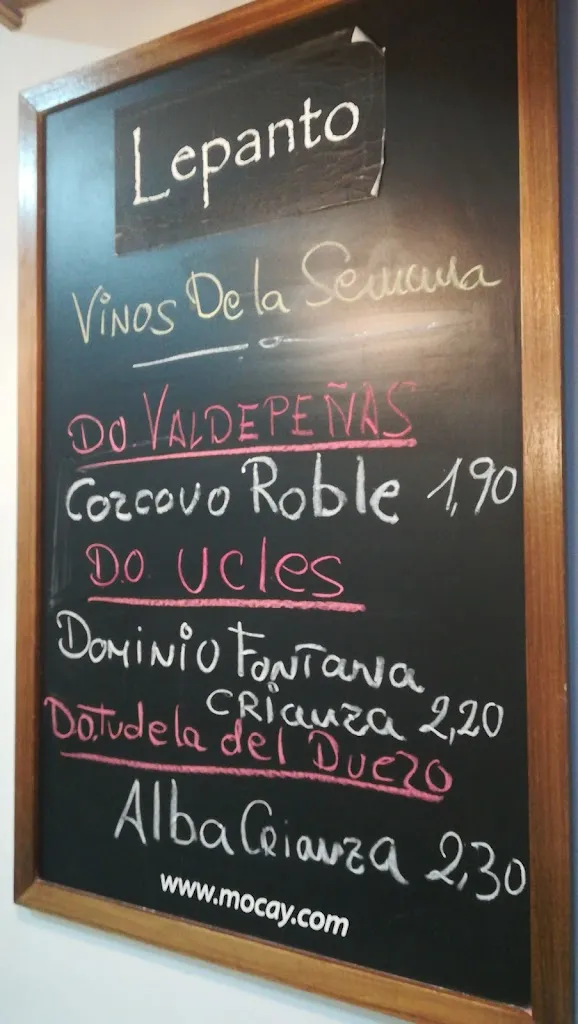 Lepanto
Vinos De la Semana
DO. VALDEPEÑAS
Corcovo Roble 1,90
D.O. UCLES
DOMINIO FONTANA
CRianza 2,20
DO.Tudela del Duero
Alba Crianza 2,30
www.mocay.com